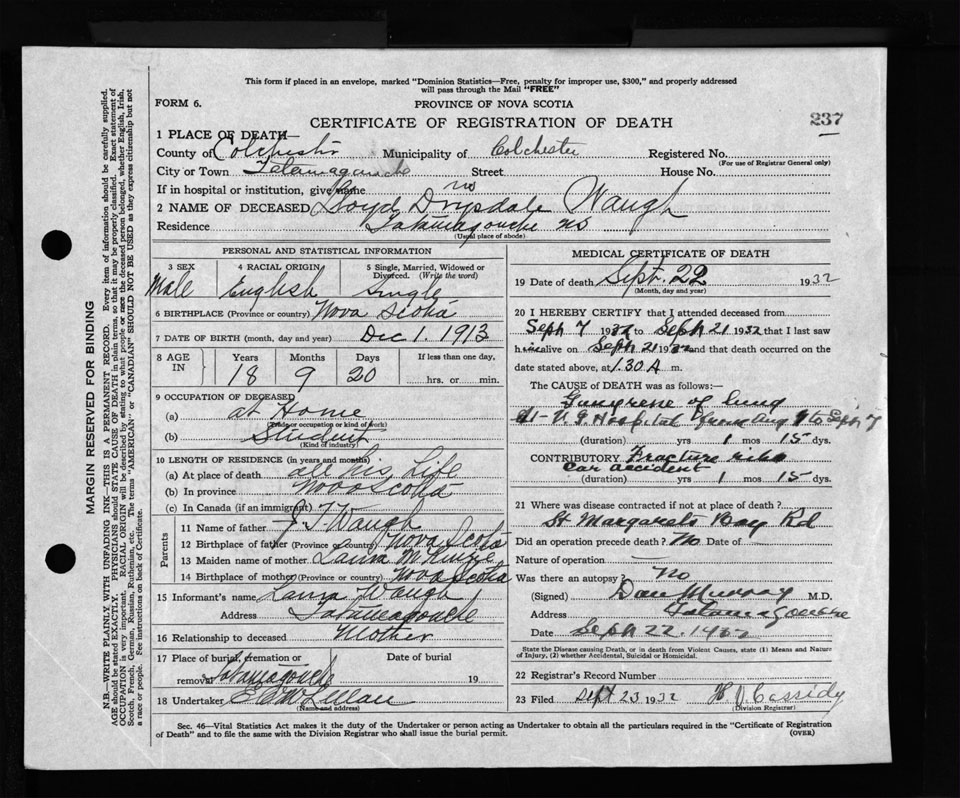 This form if placed in an envelope, marked "Dominion Statistics—Free, penalty for improper use, $300," and properly addressed
will pass through the Mail "FREE"
FORM 6.
PROVINCE OF NOVA SCOTIA
237
CERTIFICATE OF REGISTRATION OF DEATH
1 PLACE OF DEATH—
County of Colchester Municipality of Colchester Registered No.
(For use of Registrar General only)
City or Town Tatamagouche Street House No.
If in hospital or institution, give name no
2 NAME OF DECEASED Lloyd Drysdale Waugh
Residence Tatamagouche NS
(Usual place of abode)
PERSONAL AND STATISTICAL INFORMATION
3 SEX 4 RACIAL ORIGIN 5 Single, Married, Widowed or Divorced. (Write the word)
Male English Single
6 BIRTHPLACE (Province or country) Nova Scotia
7 DATE OF BIRTH (month, day and year) Dec 1. 1913
8 AGE IN Years Months Days If less than one day,
18 9 20 hrs. or min.
9 OCCUPATION OF DECEASED
(a) at Home
(Trade or occupation or kind of work)
(b) Student
(Kind of industry)
10 LENGTH OF RESIDENCE (in years and months)
(a) At place of death all his Life
(b) In province Nova Scotia
(c) In Canada (if an immigrant)
Parents
11 Name of father J. T. Waugh
12 Birthplace of father (Province or country) Nova Scotia
13 Maiden name of mother Laura McKenzie
14 Birthplace of mother (Province or country) Nova Scotia
15 Informant's name Laura Waugh
Address Tatamagouche
16 Relationship to deceased Mother
17 Place of burial, cremation or Date of burial
removal Tatamagouche 19
18 Undertaker
(Name and address)
MEDICAL CERTIFICATE OF DEATH
19 Date of death Sept. 22 1932
(Month, day and year)
20 I HEREBY CERTIFY that I attended deceased from
Sept 7 1932 to Sept 21 1932 that I last saw
him alive on Sept 21 1932 and that death occurred on the
date stated above, at 1.30 A m.
The CAUSE of DEATH was as follows:—
Gangrene of lung
V. G. Hospital from Aug to Sept 7
(duration) yrs 1 mos 15 dys.
CONTRIBUTORY Fracture ribs
Car accident
(duration) yrs 1 mos 15 dys.
21 Where was disease contracted if not at place of death?
St Margarets Bay Rd
Did an operation precede death? No Date of
Nature of operation
Was there an autopsy? No
(Signed) Dan Murray M.D.
Address Tatamagouche
Date Sept 22. 1932
State the Disease causing Death, or in death from Violent Causes, state (1) Means and Nature
of Injury, (2) whether Accidental, Suicidal or Homicidal.
22 Registrar's Record Number
23 Filed Sept 23 1932 H J Cassidy
(Division Registrar)
Sec. 46—Vital Statistics Act makes it the duty of the Undertaker or person acting as Undertaker to obtain all the particulars required in the "Certificate of Registration
of Death" and to file the same with the Division Registrar who shall issue the burial permit.
(OVER)
MARGIN RESERVED FOR BINDING
N.B.—WRITE PLAINLY WITH UNFADING INK—THIS IS A PERMANENT RECORD. Every item of information should be carefully supplied.
AGE should be stated EXACTLY. PHYSICIANS should STATE CAUSE OF DEATH in plain terms, so that it may be properly classified. Exact statement of
OCCUPATION is very important. RACIAL ORIGIN will be described by stating to what people or race the deceased person belonged, whether English, Irish,
Scotch, French, German, Russian, Ruthenian, etc. The terms "AMERICAN" or "CANADIAN" SHOULD NOT BE USED as they express citizenship but not
a race or people. See instructions on back of Certificate.